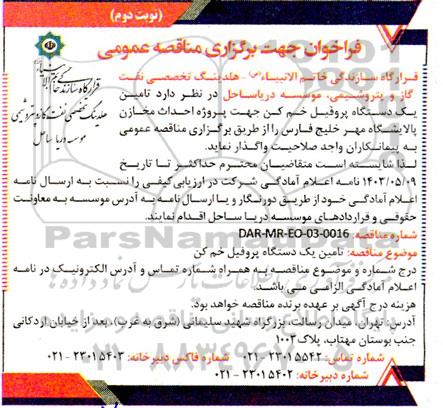 (نوبت دوم)
فراخوان جهت برگزاری مناقصه عمومی
قرارگاه سازندگی خاتم الانبیاء - هلدینگ تخصصی نفت
گاز و پتروشیمی، موسسه دریاساحل در نظر دارد تامین
یک دستگاه پروفیل خم کن جهت پروژه احداث مخازن
پالایشگاه مهر خلیج فارس را از طریق برگزاری مناقصه عمومی
به پیمانکاران واجد صلاحیت واگذار نماید.
لذا شایسته است متقاضیان محترم حداکثر تا تاریخ
۱۴۰۳/۰۵/۰۹ نامه اعلام آمادگی شرکت در ارزیابی کیفی را نسبت به ارسال نامه
اعلام آمادگی خود از طریق دورنگار و یا ارسال نامه به آدرس موسسه به معاونت
حقوقی و قراردادهای موسسه دریا ساحل اقدام نمایند.
شماره مناقصه: DAR-MR-EO-03-0016
موضوع مناقصه: تامین یک دستگاه پروفیل خم کن
درج شماره و موضوع مناقصه به همراه شماره تماس و آدرس الکترونیک در نامه
اعلام آمادگی الزامی می باشد.
هزینه درج آگهی بر عهده برنده مناقصه خواهد بود.
آدرس: تهران، میدان رسالت، بزرگراه شهید سلیمانی (شرق به غرب)، بعد از خیابان اردکانی
جنب بوستان مهتاب، پلاک ۱۰۰۳
شماره تماس: ۲۳۰۱۵۵۴۲-۰۲۱ شماره فاکس دبیرخانه: ۲۳۰۱۵۴۰۳-۰۲۱
شماره دبیرخانه: ۲۳۰۱۵۴۰۲-۰۲۱
قرارگاه سازندگی خاتم الانبیاء
هلدینگ تخصصی نفت گاز و پتروشیمی
موسسه دریا ساحل
ParsNamadData